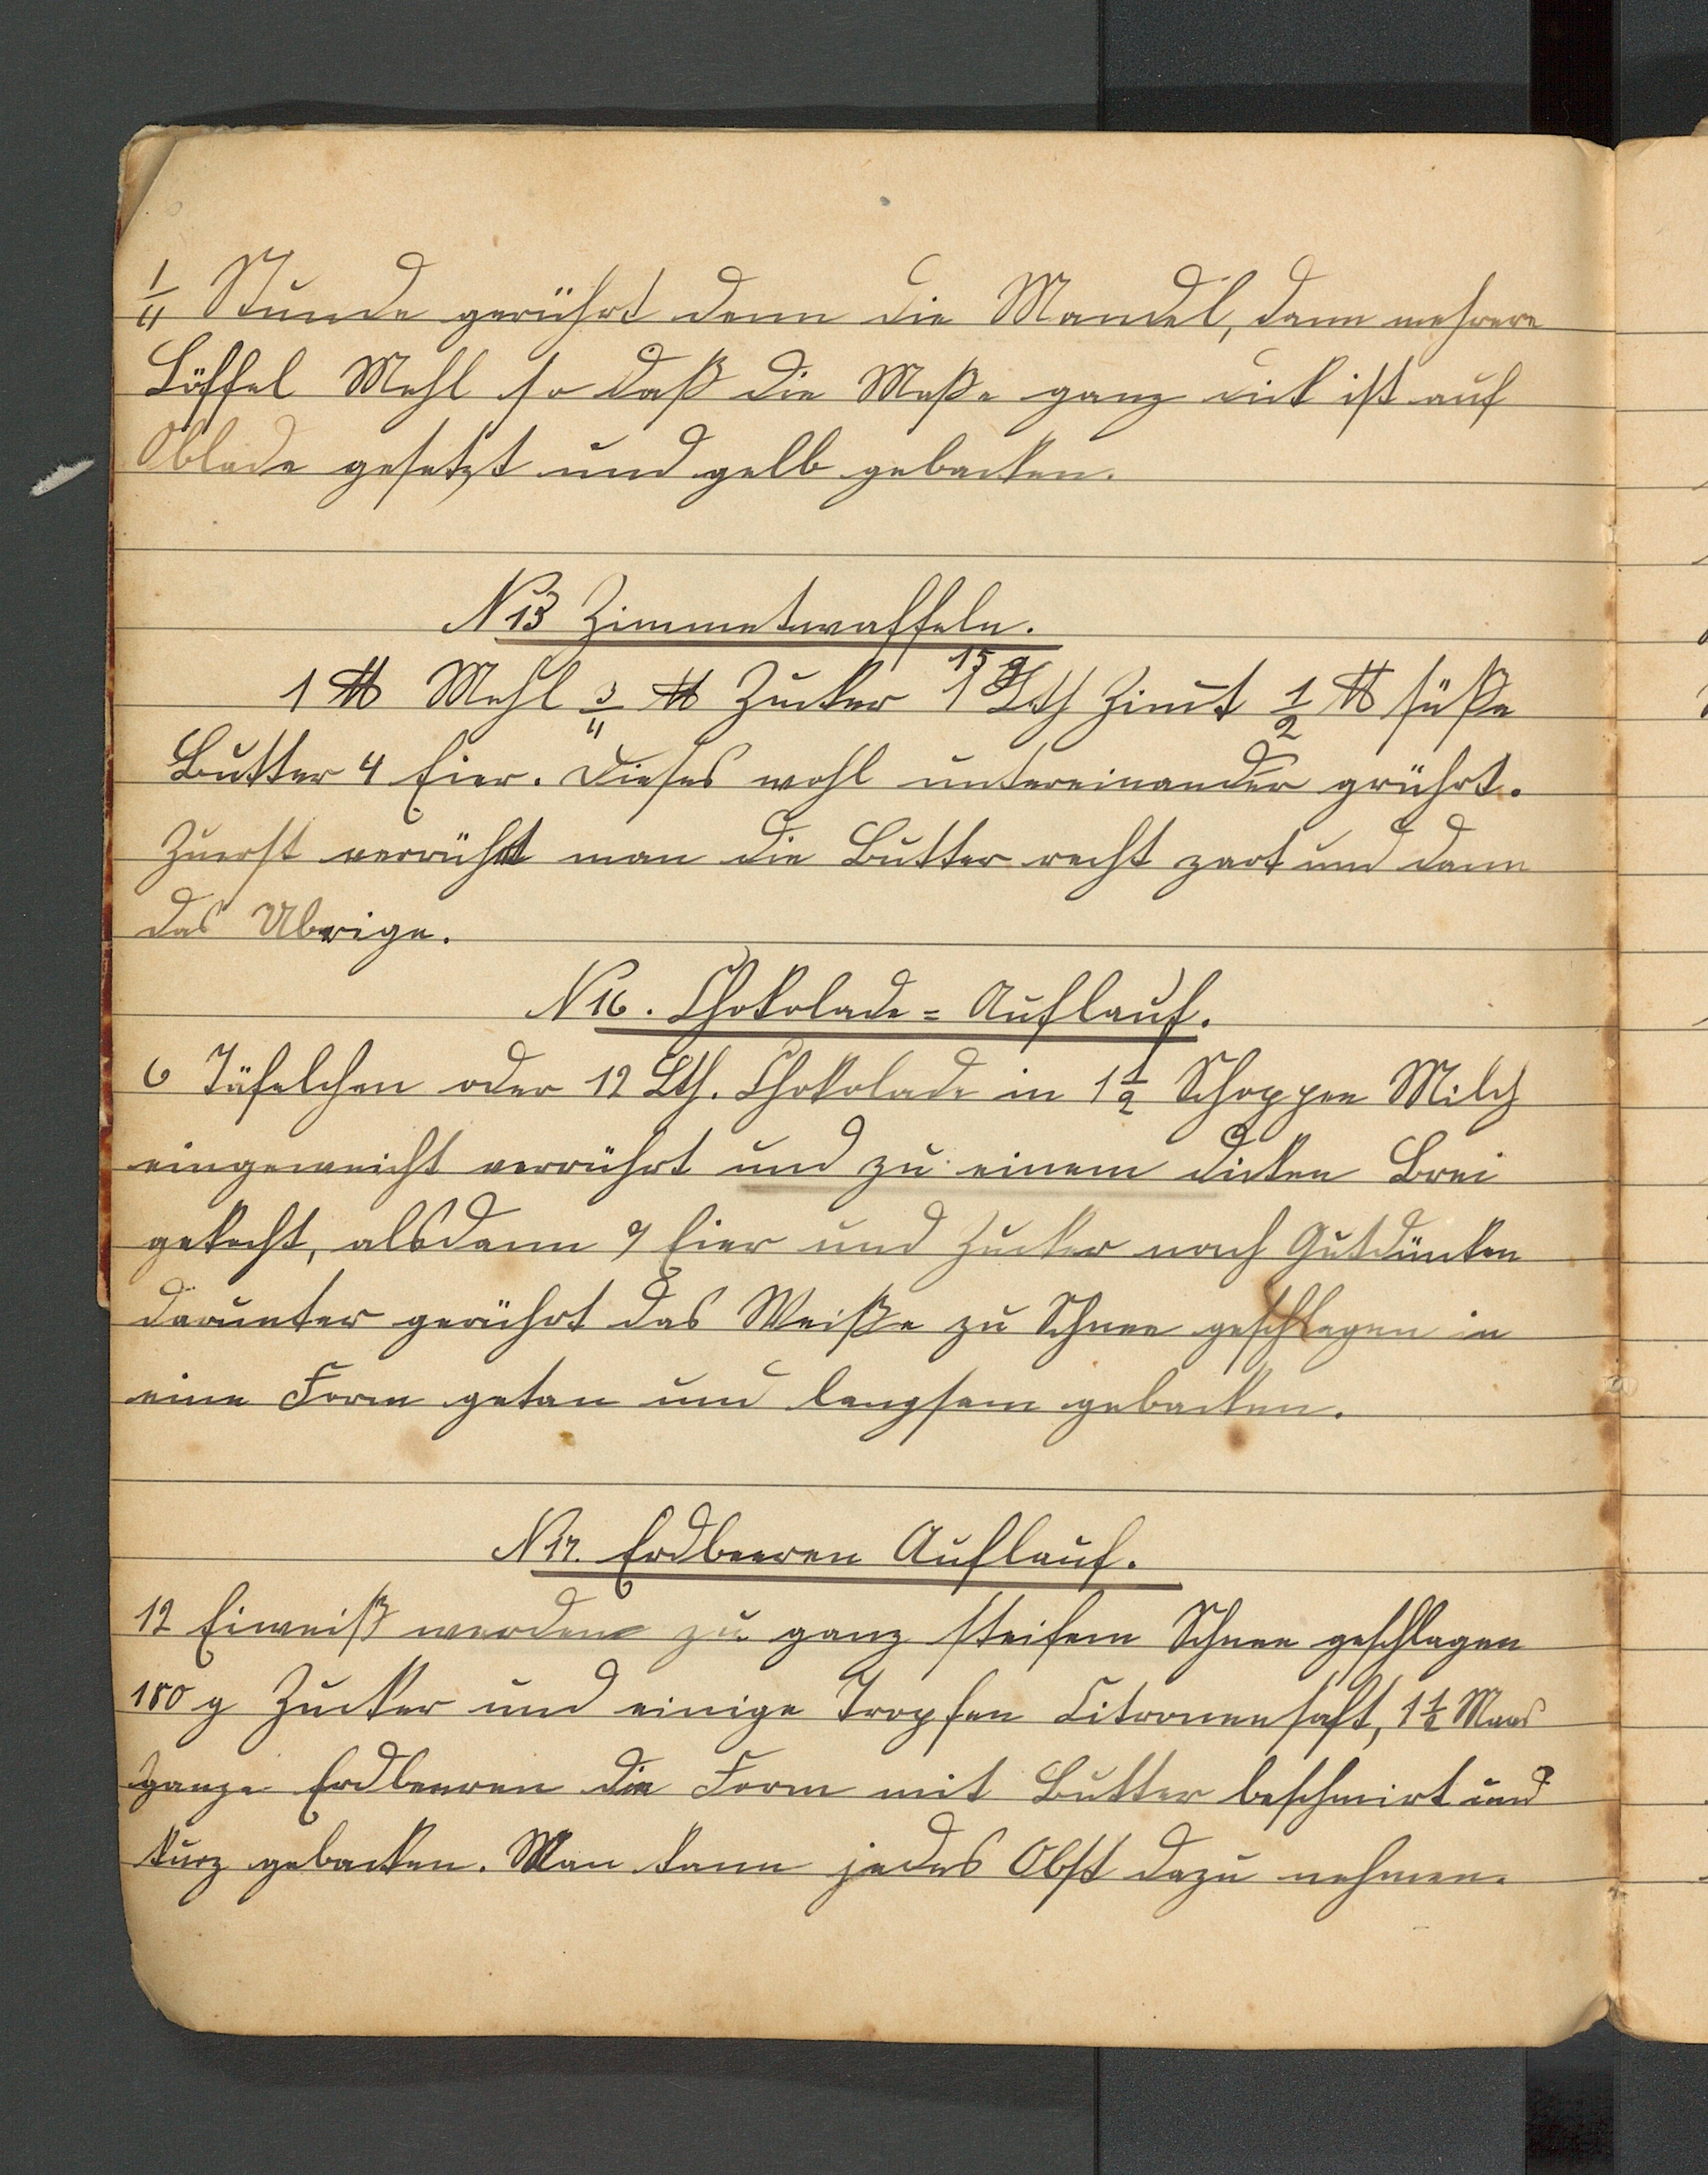 1/4 Stunde gerührt dann die Mandel, dann mehrere
Löffel Mehl so daß die Maße ganz dick ist auf
Oblade gesetzt und gelb gebacken.
N 13 Zimmetwaffeln.
1 ℔ Mehl 3/4 ℔ Zucker 1 Lth Zimt 1/2 ℔ süße
15 g
Butter 4 Eier. Dieses wohl untereinander grührt.
Zuerst verrührt man die Butter recht zart und dann
das Ubrige.
N 16. Chokolade=Auflauf.
6 Täfelchen oder 12 Lth. Chokolade in 1 1/2 Schoppen Milch
eingeweicht verrührt und zu einem dicken Brei
gekocht, alsdann 9 Eier und Zucker nach Gutdünken
darunter gerührt das Weiße zu Schnee geschlagen in
eine Form getan und langsam gebacken.
N 17. Erdbeeren Auflauf.
12 Eiweiß werden zu ganz steifem Schnee geschlagen
180 g Zucker und einige Tropfen Citronensaft, 1 1/2 Maas
ganze Erdbeeren die Form mit Butter beschmirt und
kurz gebacken. Man kann jedes Obst dazu nehmen.